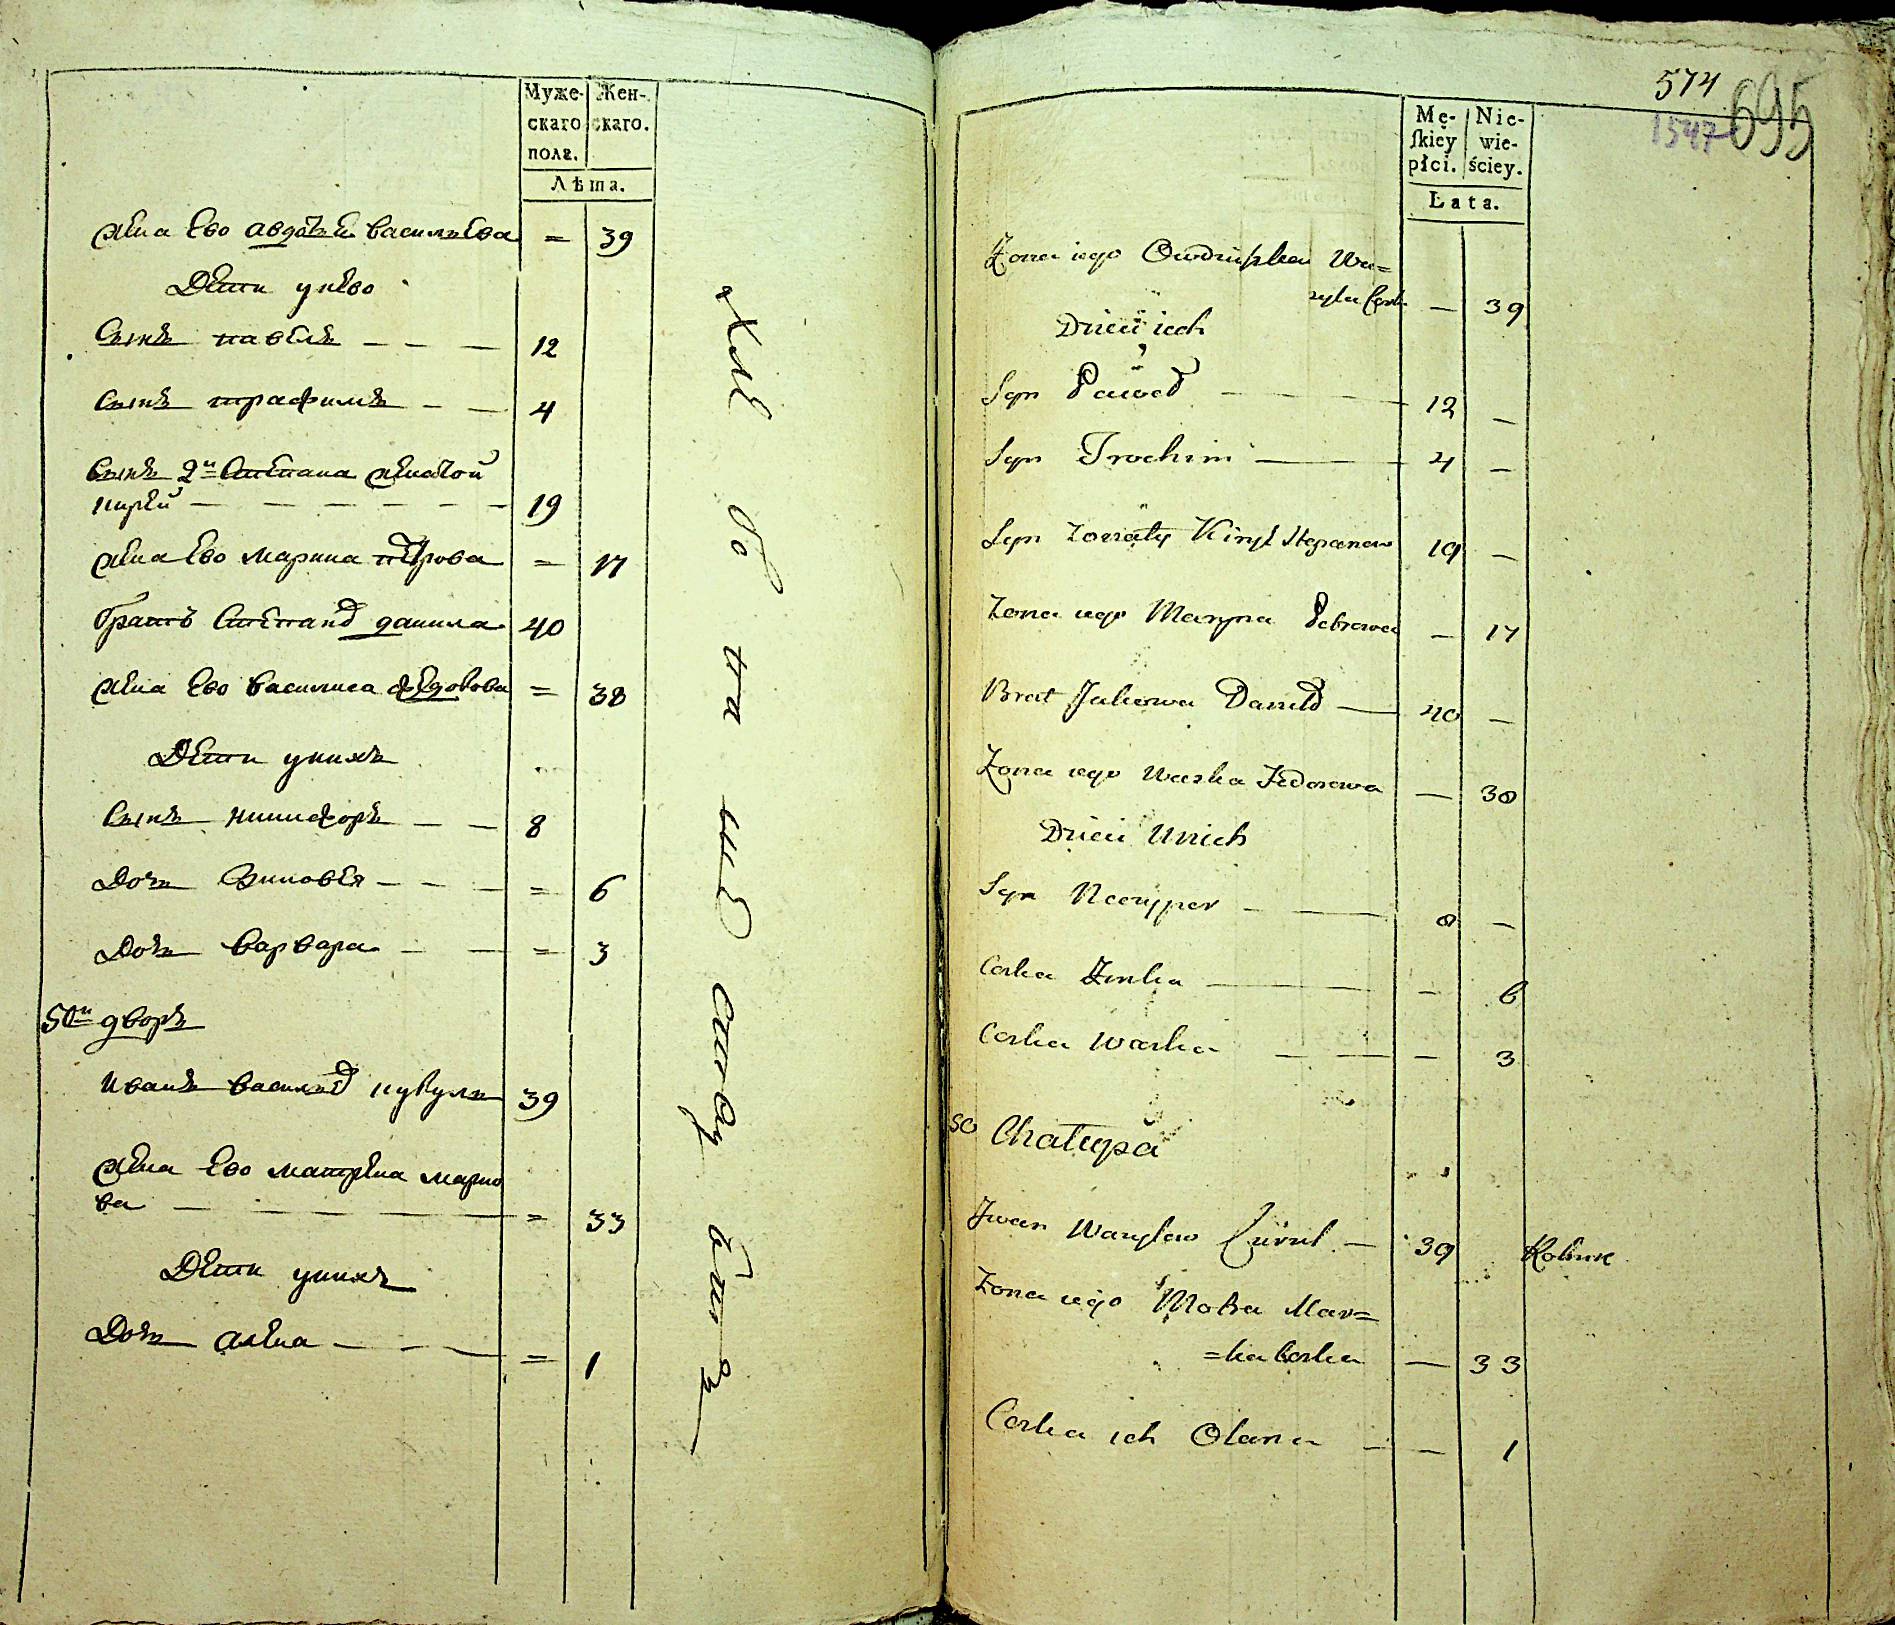 Муже-
скаго
полг.
Жен-
скаго.
Лѣта.
жена Ево авдотья василиева = 39
Дети унево
Сынъ павелъ 12
Сынъ трафимъ 4
Сынъ 2й Степана женатой
кирей 19
жена Ево марина петрова = 17
братъ Степана данила 40
жена Ево василиса федорова = 38
Дети унихъ
Сынъ никифоръ 8
Дочь Зиновея = 6
Дочь варвара = 3
50й дворъ
Иванъ василиев 39
жена Ево матрена марко
ва = 33
Дети унихъ
Дочь алена = 1
574
695
1547
Mę-
skiey
płci.
Nie-
wie-
ściey.
Lata.
Żona iego Owdiuszka Wa=
zyla Cork — 39
Dzieci ich
Syn Paweł 12 —
Syn Trochim 4 —
Syn żonaty Kirył Stepanow 19 —
Żona iego Maryna Petrowa — 17
Brat Jakowa Daniło 40 —
Żona iego Waska Fedorowa — 38
Dzieci Unich
Syn Neczypor 8 —
Corka Zinka — 6
Corka Warka — 3
50 Chałupa
Iwan Wasylew 39
Żona iego Motra Mar=
=ka Corka — 33
Corka ich Olana — 1